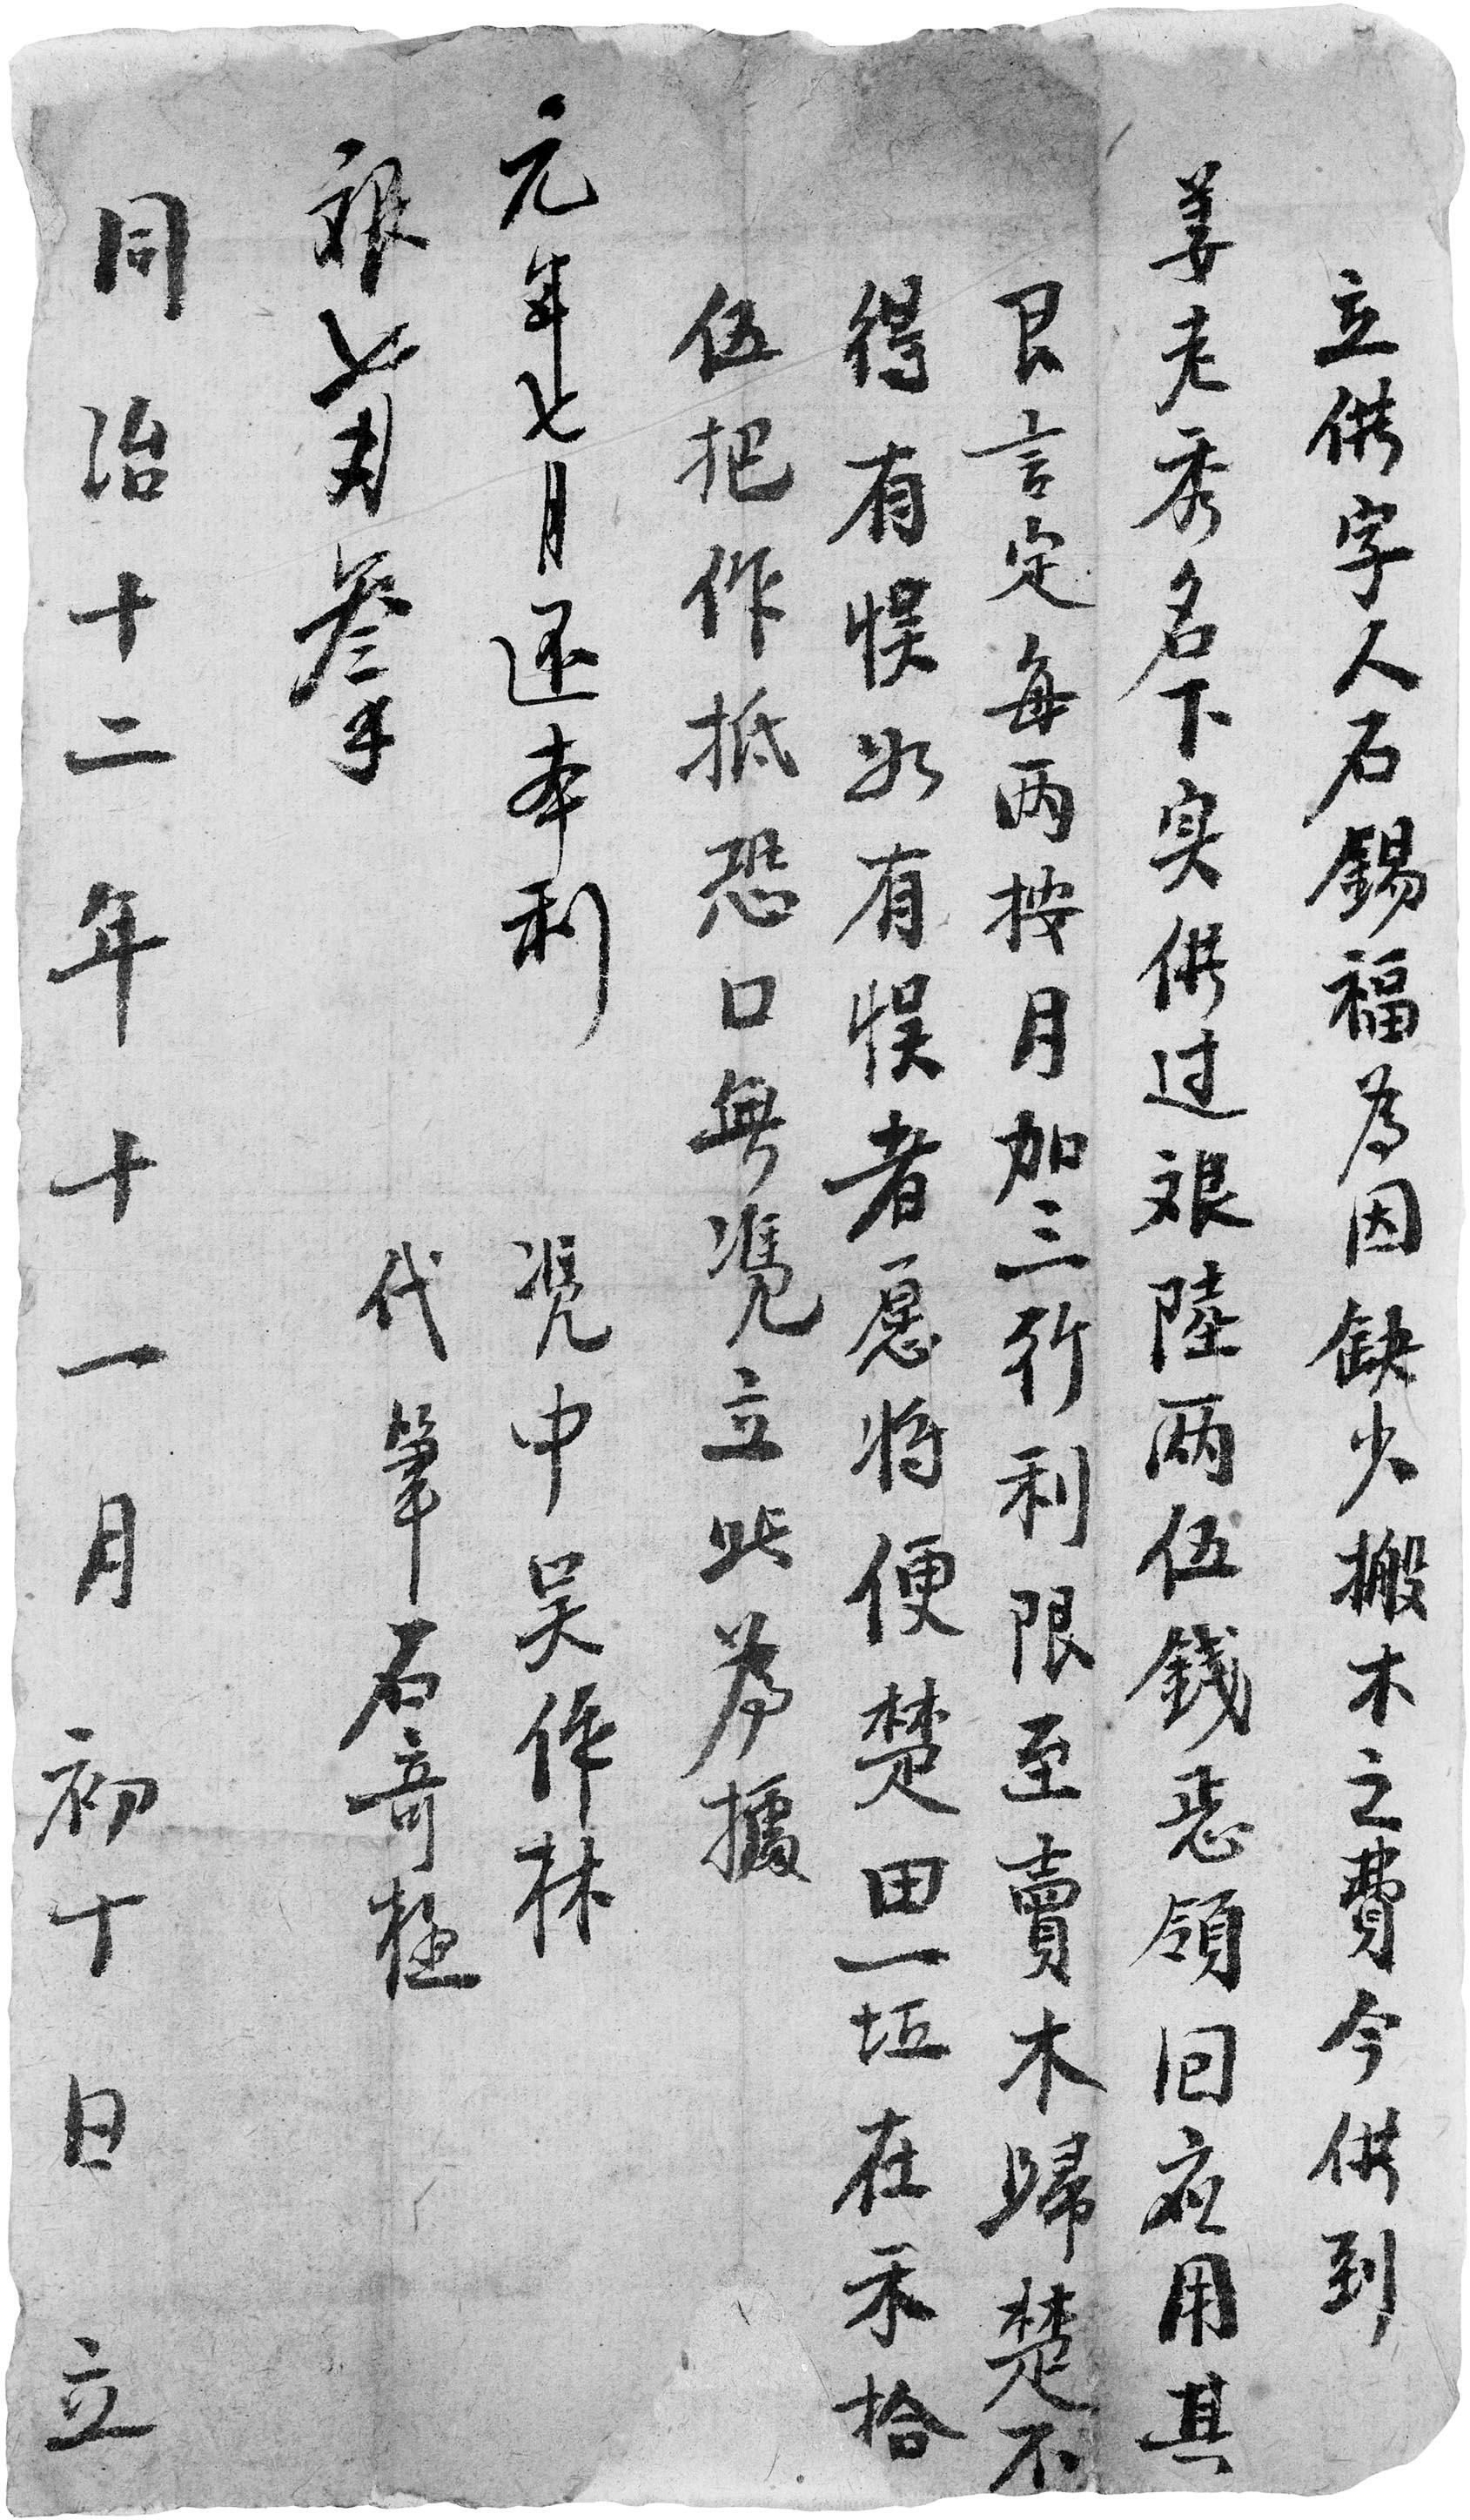 立供字人石錫福為因缺少搬木之費今供到
姜老秀名下实供过艮陸両伍錢恶領回应用其
艮言定每両按月加三行利限至賣木歸楚不
得有悮如有悮者愿将便楚田一坵在禾拾
伍把作抵恐口無凴立此為據
元年七月还本利
艮
凴中吴作林
代筆石奇極
同治十二年十一月初十日立